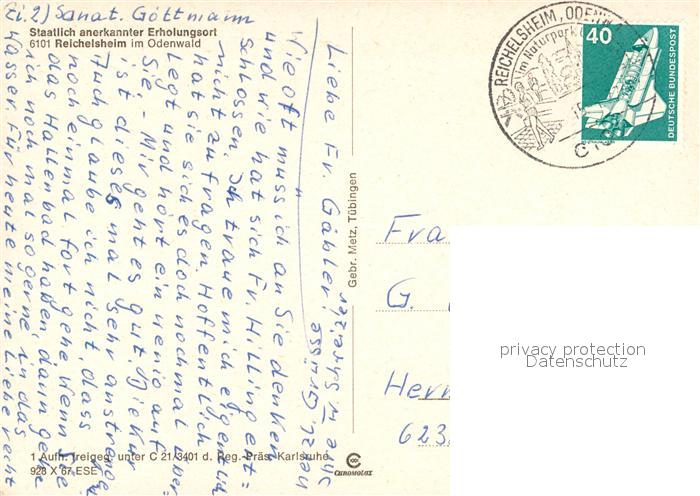 (Zi. 2) Sanat. Göttmann
Staatlich anerkannter Erholungsort
6101 Reichelsheim im Odenwald
Liebe Fr. Gähler!
Wie oft muss ich an Sie denken
und wie hat sich Fr. Hilling ent=
schlossen. Ich traue mich eigentlich
nicht zu fragen. Hoffentlich
hat sie sich es doch nochmal über=
legt und hört ein wenig auf
Sie. - Mir geht es gut. Die Kur
ist dieses mal sehr anstreng.
Auch glaube ich nicht, dass ich
noch einmal fort gehe. Wenn Sie
das Hallenbad haben, dann gehe
ich noch mal so gerne in das
Wasser. Für heute meine Liebe recht
herzl. Grüsse
Ihre
Gebr. Metz, Tübingen
REICHELSHEIM, ODENW
Im Naturpark
40
DEUTSCHE BUNDESPOST
Fra
G.
Her
623
privacy protection
Datenschutz
1 Aufn. freigeg. unter C 21/3401 d. Reg.-Präs. Karlsruhe
928 X 67 ESE
CHROMOLUX